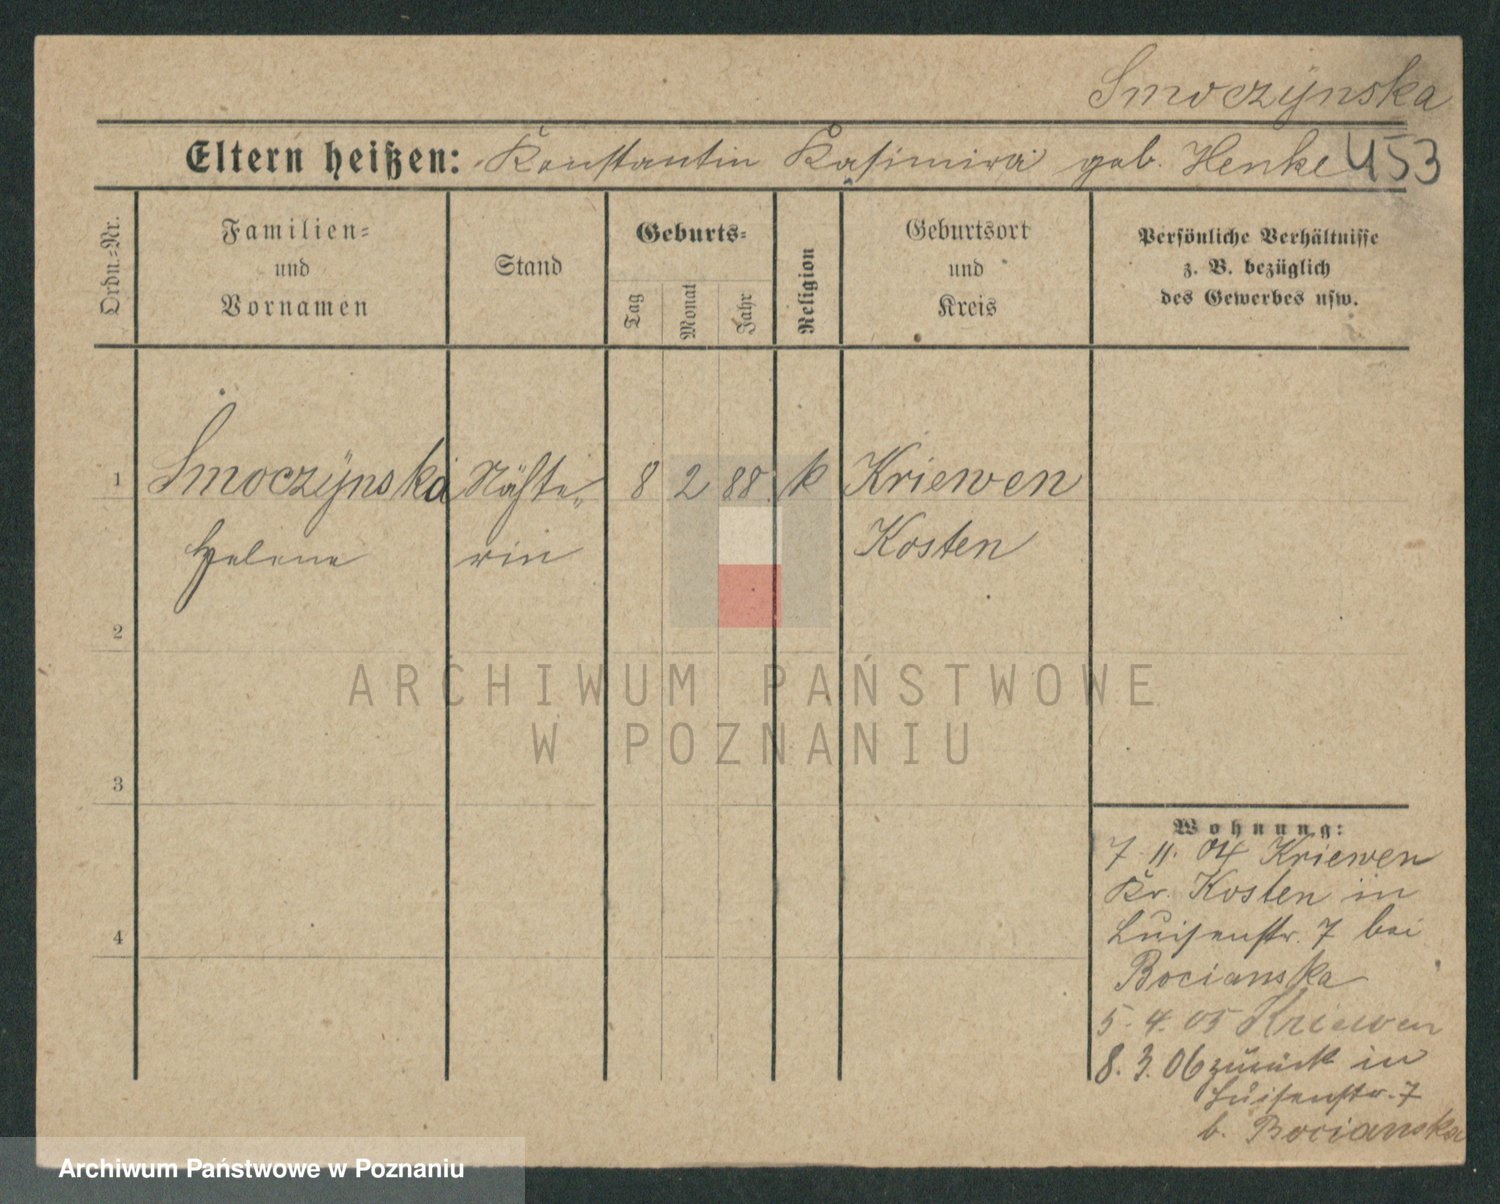 Smoczÿnska
Eltern heißen: Konstantin Kasimira geb. Henke 453
Ordn.=Nr.
Familien=
und
Vornamen
Stand
Geburts=
Tag
Monat
Jahr
Religion
Geburtsort
und
Kreis
Persönliche Verhältnisse
z. B. bezüglich
des Gewerbes usw.
1 Smoczÿnska 8 2 88. k Kriewen
Helene rin Kosten
2
3
4
Wohnung:
7. 11. 04 Kriewen
Kr. Kosten in
Luisenstr. 7 bei
Bocianska
5. 4. 05 Kriewen
8. 3. 06 zurück in
Luisenstr. 7
b. Bocianska
ARCHIWUM PAŃSTWOWE
W POZNANIU
Archiwum Państwowe w Poznaniu